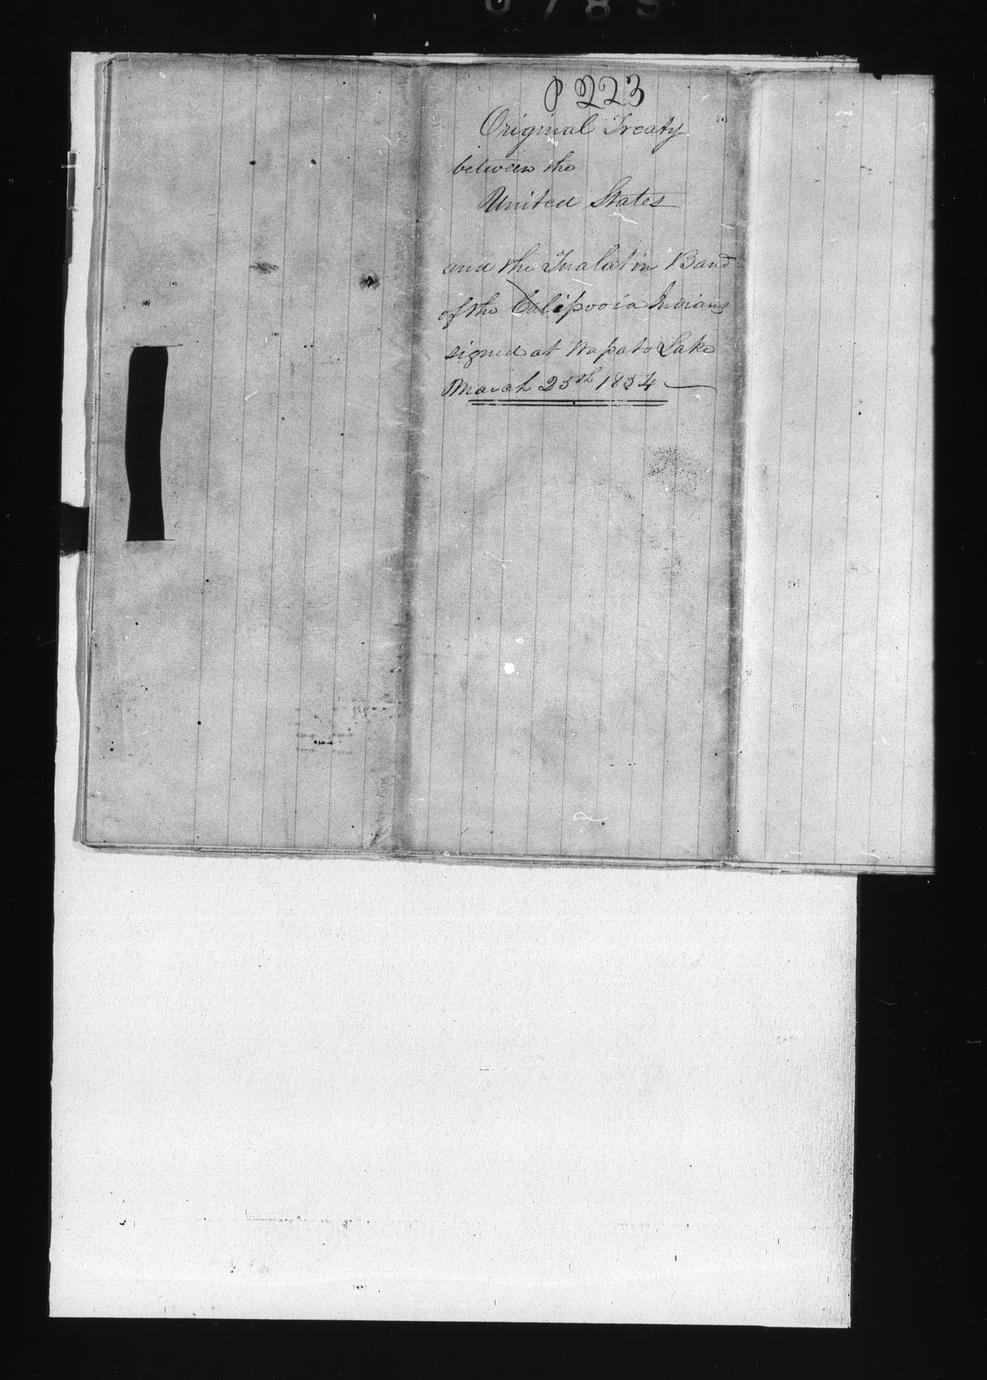 P 223
Original Treaty
between the
United States
and the Tualatin Band
of the Calipooia Indians
signed at Wapato Lake
March 25th 1854